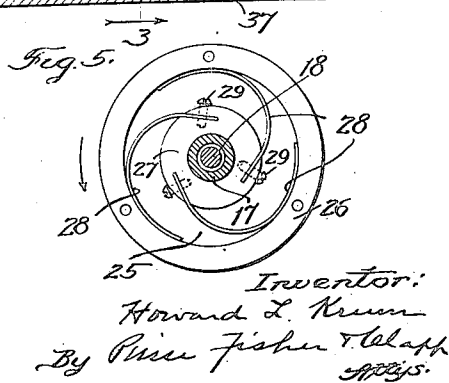 37
3
Fig. 5.
18
29
28
27
29
28
28
17
26
25
Inventor:
Howard L. Krum
By Fisher & Clapp
Attys.